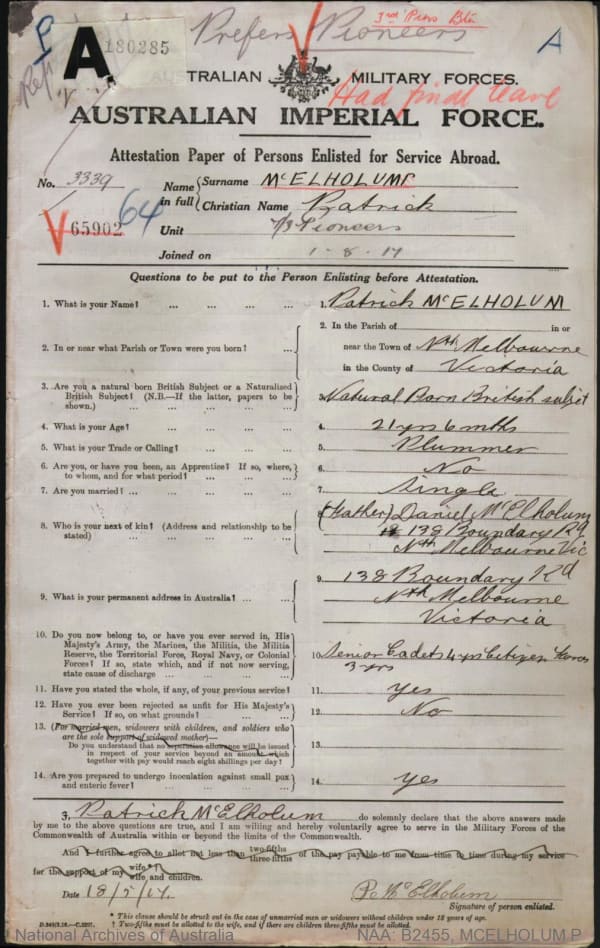 3rd Pnrs Btn
A.
180285
Prefers Pioneers
A
AUSTRALIAN MILITARY FORCES.
Had final leave
AUSTRALIAN IMPERIAL FORCE.
Attestation Paper of Persons Enlisted for Service Abroad.
No. 3339
Name in full { Surname McELHOLUM P.
Christian Name Patrick
65902 64
Unit 7/3 Pioneers
Joined on 1-8-17
Questions to be put to the Person Enlisting before Attestation.
1. What is your Name? ... ... ... ... 1. Patrick McELHOLUM
2. In or near what Parish or Town were you born? ... 2. In the Parish of in or
near the Town of Nth Melbourne
in the County of Victoria
3. Are you a natural born British Subject or a Naturalised
British Subject? (N.B.—If the latter, papers to be
shown.) ... ... ... ... 3. Natural Born British subjet
4. What is your Age? ... ... ... ... 4. 21 yrs 6 mths
5. What is your Trade or Calling? ... ... ... 5. Plummer
6. Are you, or have you been, an Apprentice? If so, where,
to whom, and for what period? ... ... ... 6. No
7. Are you married? ... ... ... ... 7. Single
8. Who is your next of kin? (Address and relationship to be
stated) ... ... ... ... 8. (Father) Daniel McElholum
138 Boundary Rd
Nth Melbourne Vic
9. What is your permanent address in Australia? ... ... 9. 138 Boundary Rd
Nth Melbourne
Victoria
10. Do you now belong to, or have you ever served in, His
Majesty's Army, the Marines, the Militia, the Militia
Reserve, the Territorial Force, Royal Navy, or Colonial
Forces? If so, state which, and if not now serving,
state cause of discharge ... ... ... 10. Senior Cadets 4 yrs Citizen Forces
3 yrs
11. Have you stated the whole, if any, of your previous service? 11. Yes
12. Have you ever been rejected as unfit for His Majesty's
Service? If so, on what grounds? ... ... ... 12. No
13. (For married men, widowers with children, and soldiers who
are the sole support of widowed mother)—
Do you understand that no separation allowance will be issued
in respect of your service beyond an amount which
together with pay would reach eight shillings per day? 13.
14. Are you prepared to undergo inoculation against small pox
and enteric fever? ... ... ... ... 14. Yes
I, Patrick McElholum do solemnly declare that the above answers made
by me to the above questions are true, and I am willing and hereby voluntarily agree to serve in the Military Forces of the
Commonwealth of Australia within or beyond the limits of the Commonwealth.
And I further agree to allot not less than two-fifths three-fifths of the pay payable to me from time to time during my service
for the support of my wife*† wife and children.
Date 18/5/17.
P. McElholum
Signature of person enlisted.
* This clause should be struck out in the case of unmarried men or widowers without children under 18 years of age.
† Two-fifths must be allotted to the wife, and if there are children three-fifths must be allotted.
National Archives of Australia NAA: B2455, MCELHOLUM P